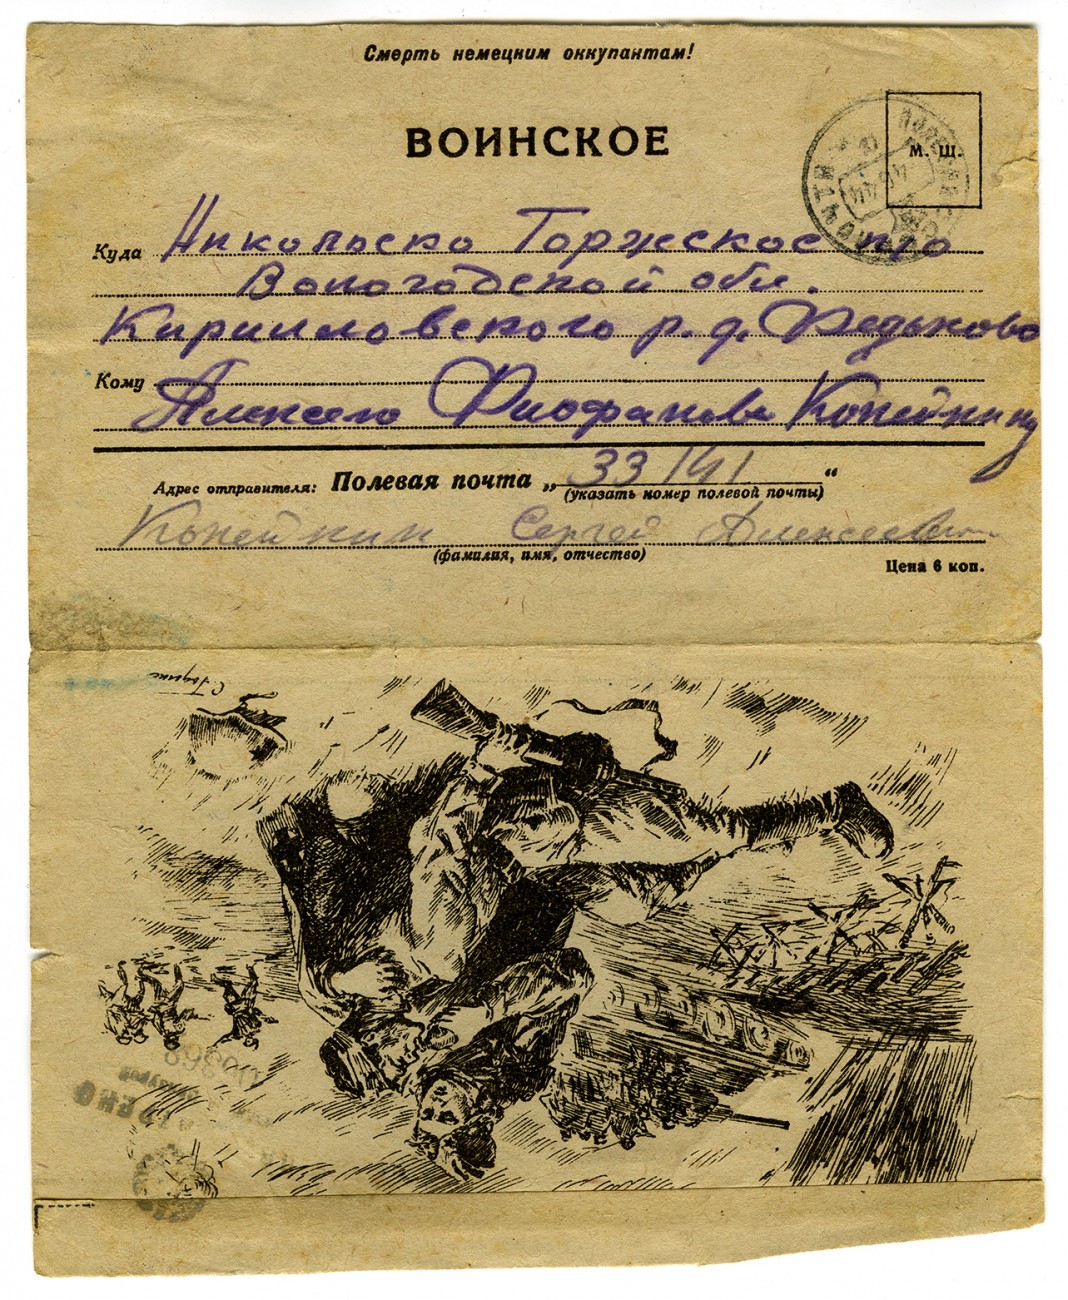 Смерть немецким оккупантам!
ВОИНСКОЕ
м. ш.
Куда Никольско Торжское п/о
Вологодской обл.
Кирилловского р. д. Федьково
Кому Алексею Фиофанове Копейкину
Адрес отправителя: Полевая почта „33141“
(указать номер полевой почты)
Копейкин Сергей Алексеевич
(фамилия, имя, отчество)
Цена 6 коп.